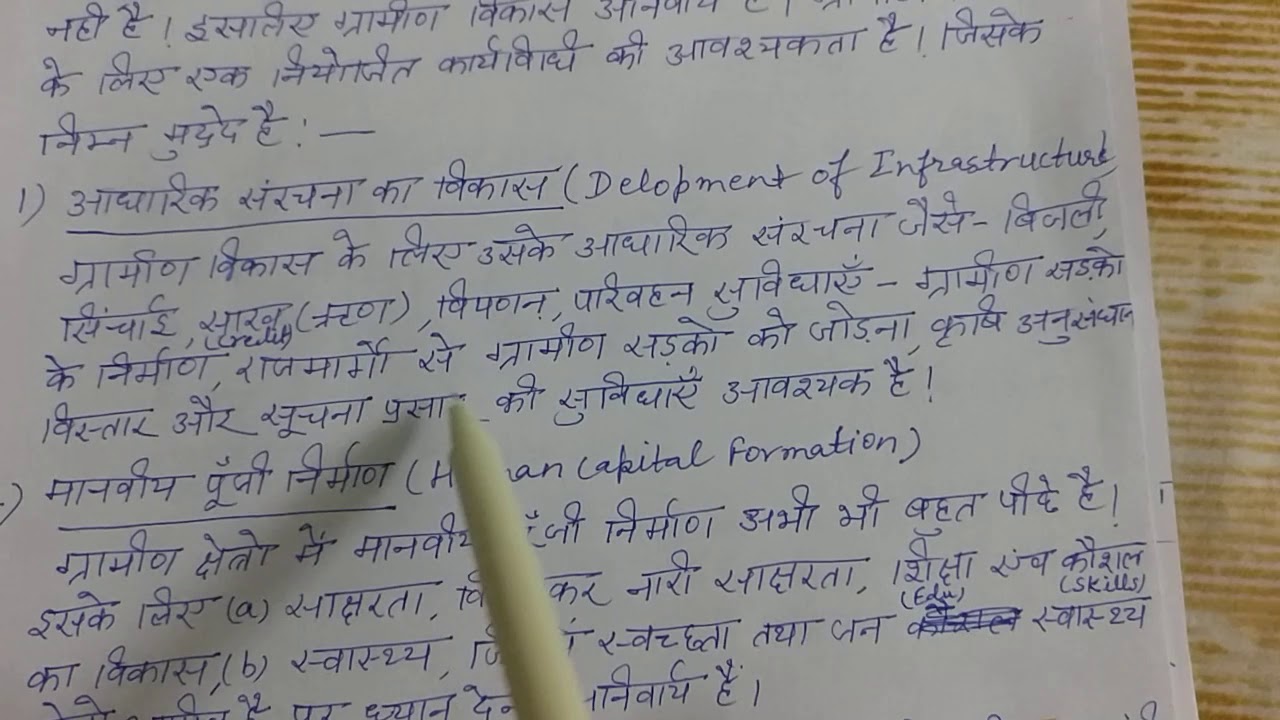 नही है। इसलिए ग्रामीण विकास अनिवार्य है।
के लिए एक नियोजित कार्यविधि की आवश्यकता है। जिसके
निम्न मुद्दे है: —
1) आधारिक संरचना का विकास (Delopment of Infrastructure
ग्रामीण विकास के लिए उसके आधारिक संरचना जैसे- बिजली,
सिंचाई, साख (ऋण), विपणन, परिवहन सुविधाएँ - ग्रामीण सड़को
(Credit)
के निर्माण, राजमार्गो से ग्रामीण सड़को को जोड़ना, कृषि अनुसंधान
विस्तार और सूचना प्रसा की सुविधाएँ आवश्यक है!
) मानवीय पूँजी निर्माण (H an Capital Formation)
ग्रामीण क्षेत्रो में मानवीय पूँजी निर्माण अभी भी बहुत पीछे है।
इसके लिए (a) साक्षरता, वि कर नारी साक्षरता, शिक्षा एंव कौशल
(Edu) (Skills)
का विकास, (b) स्वास्थ्य, जि में स्वच्छता तथा जन स्वास्थ्य
है पर ध्यान देना अनिवार्य है।